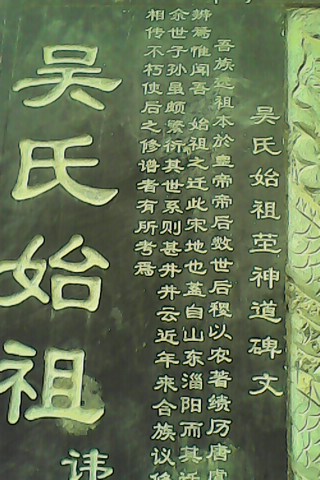 吴氏始祖茔神道碑文
吾族远祖本於皇帝帝后数世后稷以农著绩历唐虞
辨焉惟闻吾 始祖之迁此宋地也盖自山东淄阳而其迁
余世子孙虽颇繁衍其世系则甚井井云近年来合族议修
相传不朽使后之修谱者有所考焉
吴氏始祖
讳